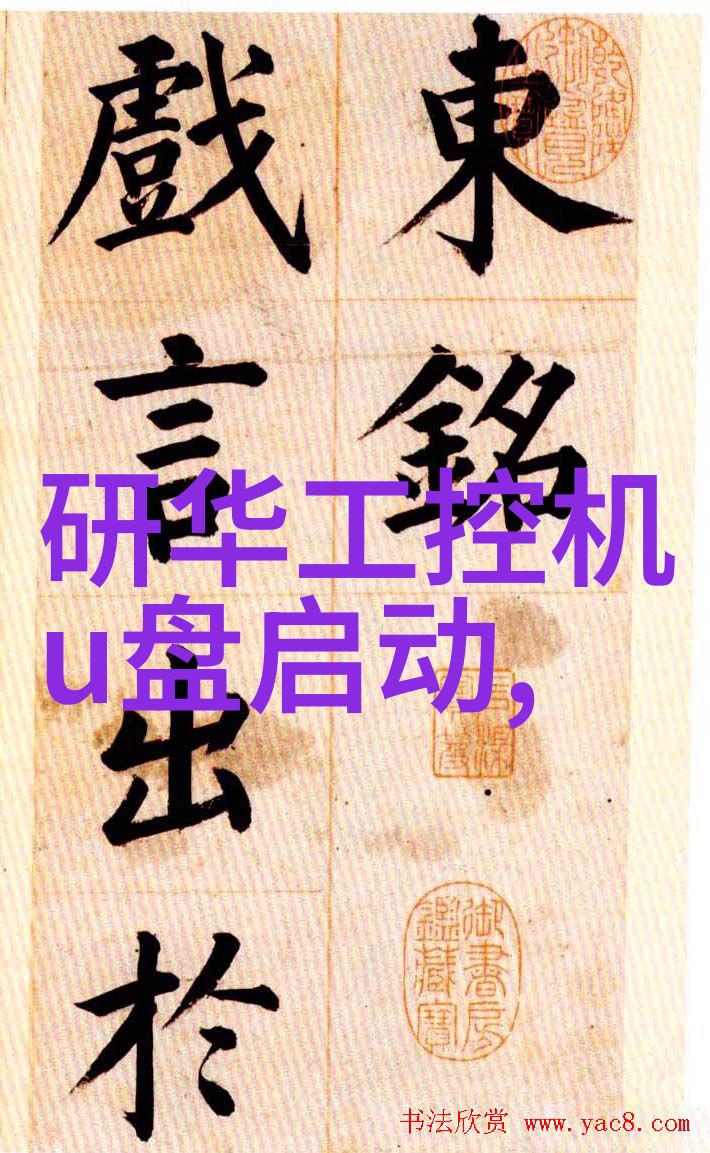 東銘
戲言出於
研华工控机
u盘启动,
御書房鑑藏寶
书法欣赏 www.yac8.com